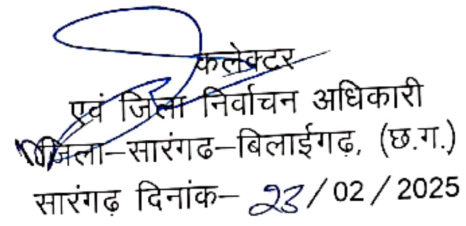 कलेक्टर
एवं जिला निर्वाचन अधिकारी
जिला–सारंगढ–बिलाईगढ़, (छ.ग.)
सारंगढ़ दिनांक– 23/02/2025